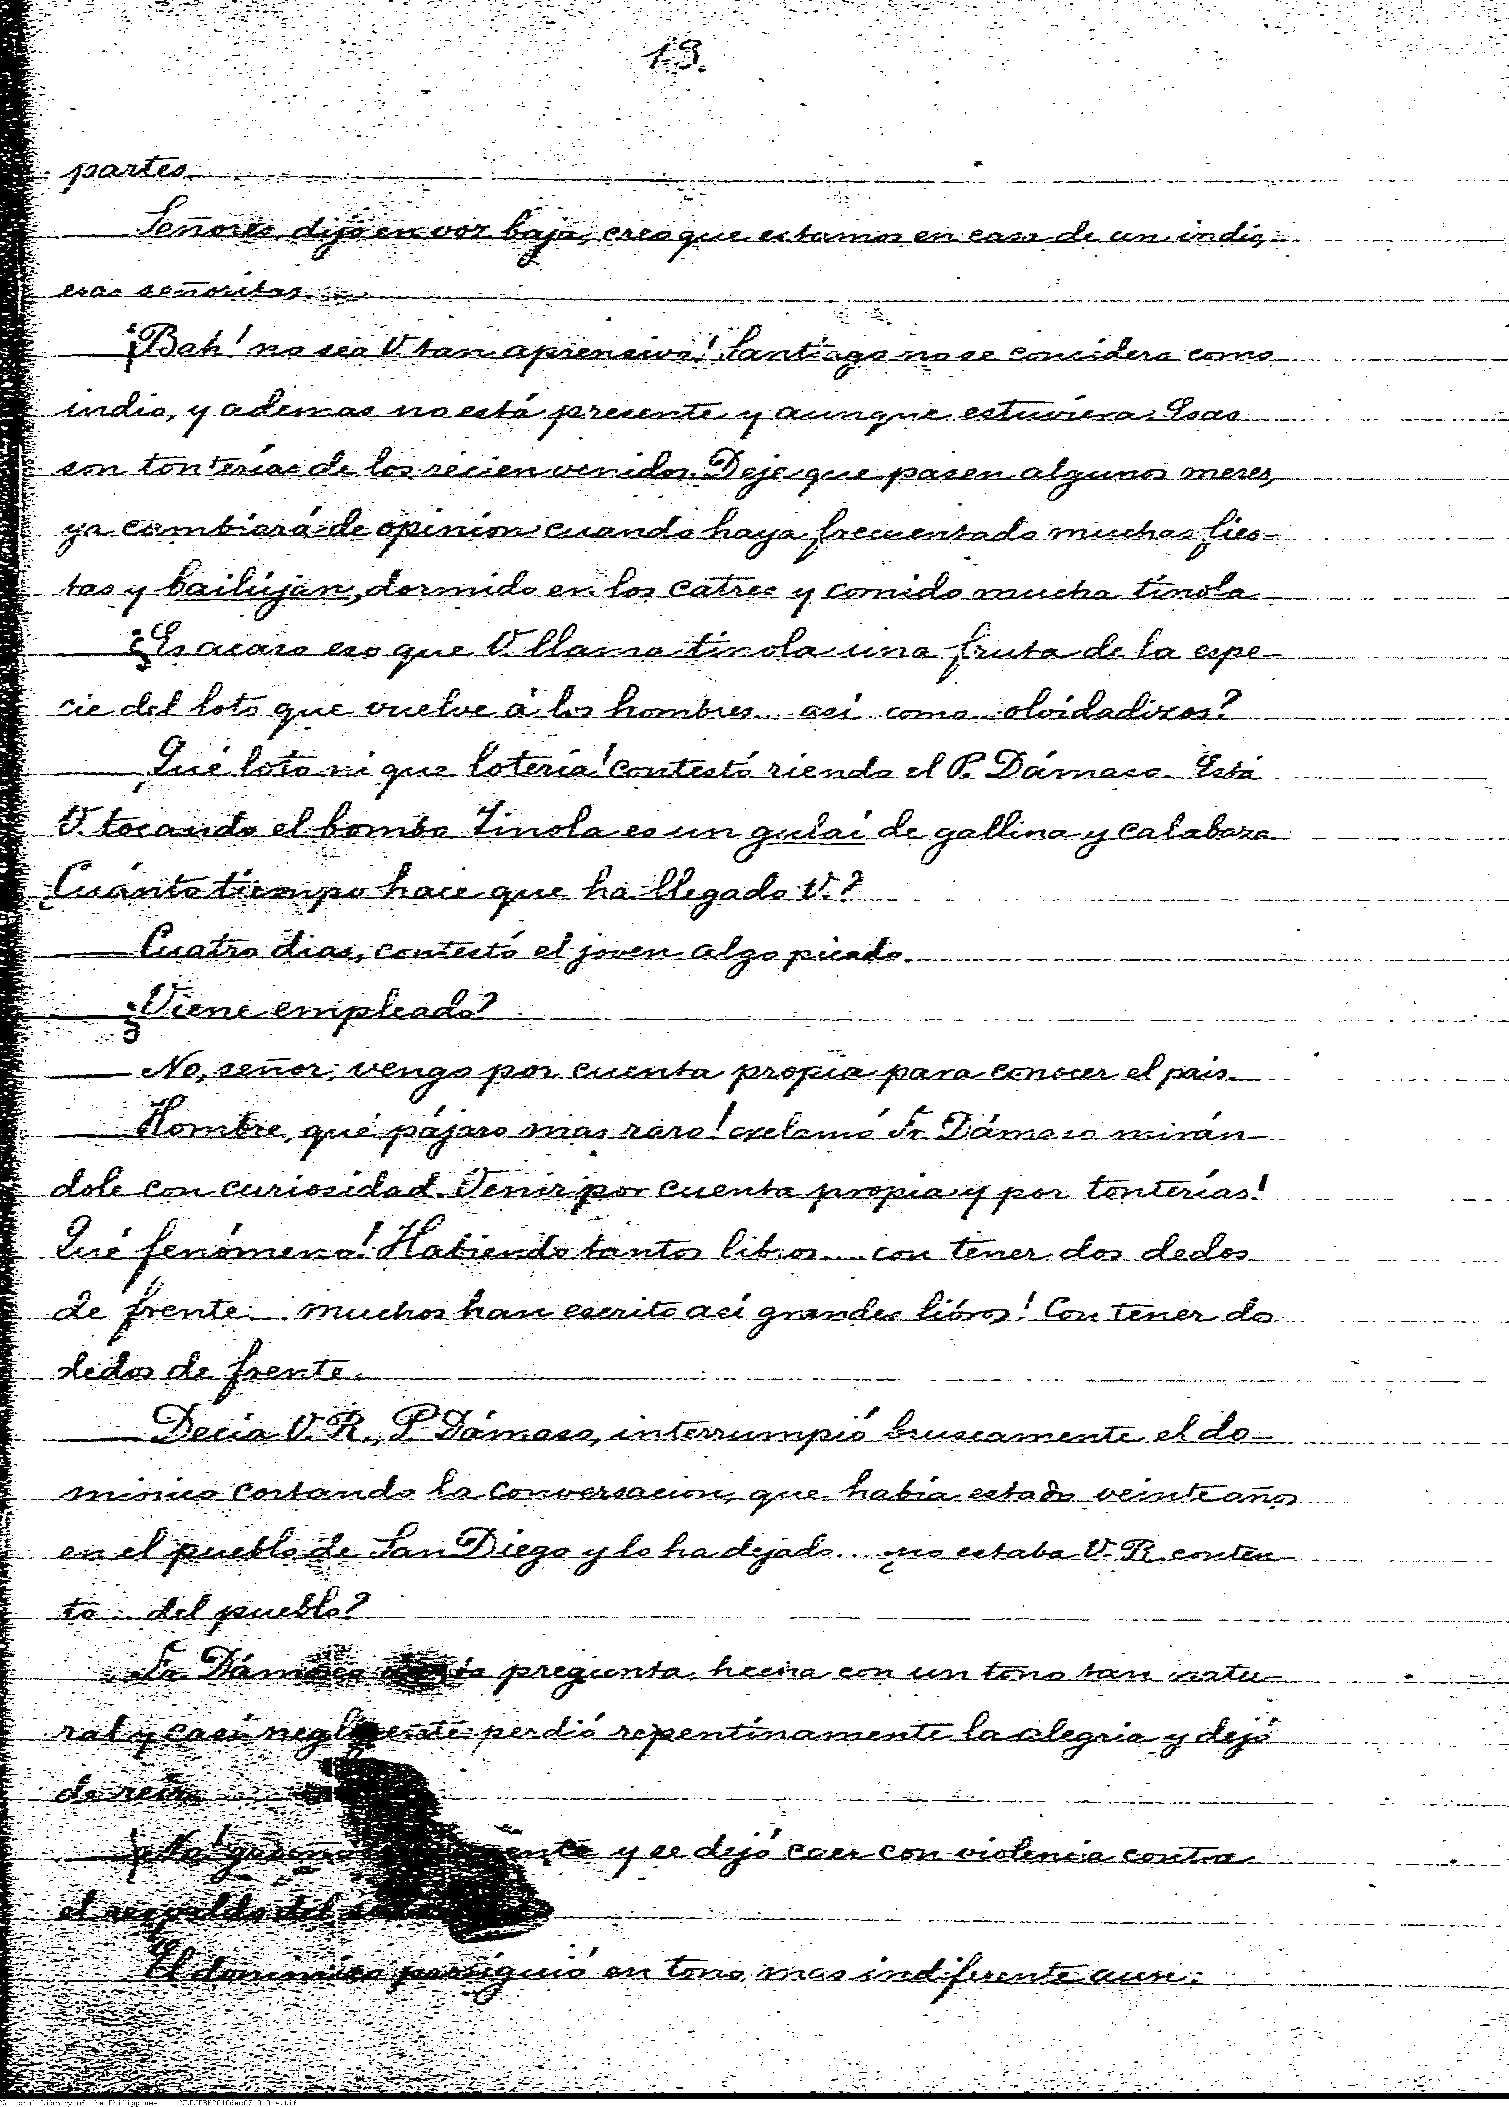 13.
partes.
— Señores, dijo en voz baja, creo que estamos en casa de un indio,
esas señoritas...
— ¡Bah! no sea V. tan aprensivo! Santiago no se considera como
indio, y ademas no está presente y aunque estuviera. Esas
son tonterías de los recien venidos. Deje que pasen algunos meses,
ya cambiará de opinion cuando haya frecuentado muchas fies-
tas y bailúján, dormido en los catres y comido mucha tinola
— ¿Es acaso eso que V. llama tinola una fruta de la espe-
cie del loto que vuelve á los hombres... así como... olvidadizos?
— ¡Qué loto ni que lotería! contestó riendo el P. Dámaso. Está
V. tocando el bombo. Tinola es un gulai de gallina y calabaza.
¿Cuánto tiempo hace que ha llegado V.?
— Cuatro dias, contestó el joven algo picado.
— ¿Viene empleado?
— No, señor; vengo por cuenta propia para conocer el pais.
— Hombre, qué pájaro mas raro! exclamó Fr. Dámaso mirán-
dole con curiosidad. Venir por cuenta propia y por tonterías!
Qué fenómeno! Habiendo tantos libros... con tener dos dedos
de frente... muchos han escrito así grandes libros! Con tener dos
dedos de frente.
— Decia V. R., P. Dámaso, interrumpió bruscamente el do-
minico cortando la conversacion, que habia estado veinte años
en el pueblo de San Diego y lo ha dejado... ¿no estaba V. R. conten-
to... del pueblo?
Fr. Dámaso pregunta hecha con un tono tan natu-
ral y casi negligente perdió repentinamente la alegria y dejó
de reir.
— ¡No! y se dejó caer con violencia contra
el respaldo del
El dominico prosiguió en tono mas indiferente aun: